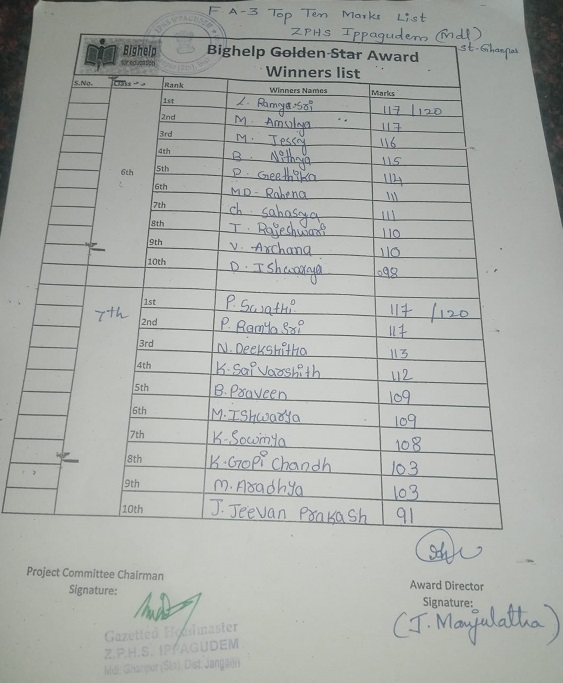 F A-3 Top Ten Marks List
ZPHS Ippagudem (Mdl)
St-Ghanpur
Bighelp
Bighelp Golden-Star Award
Winners list
S.No. Class Rank Winners Names Marks
1st L. Ramya Sri 117/120
2nd M. Amulya 117
3rd M. Jessy 116
4th B. Nithya 115
6th 5th P. Geethika 114
6th MD. Rahena 111
7th ch. Sahasya 111
8th T. Rajeshwari 110
9th V. Archana 110
10th D. Ishwarya 098
7th 1st P. Swathi 117/120
2nd P. Ramya Sri 117
3rd N. Deekshitha 113
4th K. Sai Varshith 112
5th B. Praveen 109
6th M. Ishwarya 109
7th K. Sowmya 108
8th K. Gopi Chandh 103
9th M. Aradhya 103
10th J. Jeevan Prakash 91
Project Committee Chairman
Signature:
Award Director
Signature:
(J. Manjulatha)
Gazetted Headmaster
Z.P.H.S. IPPAGUDEM
Mdl: Ghanpur (Stn), Dist. Jangaon